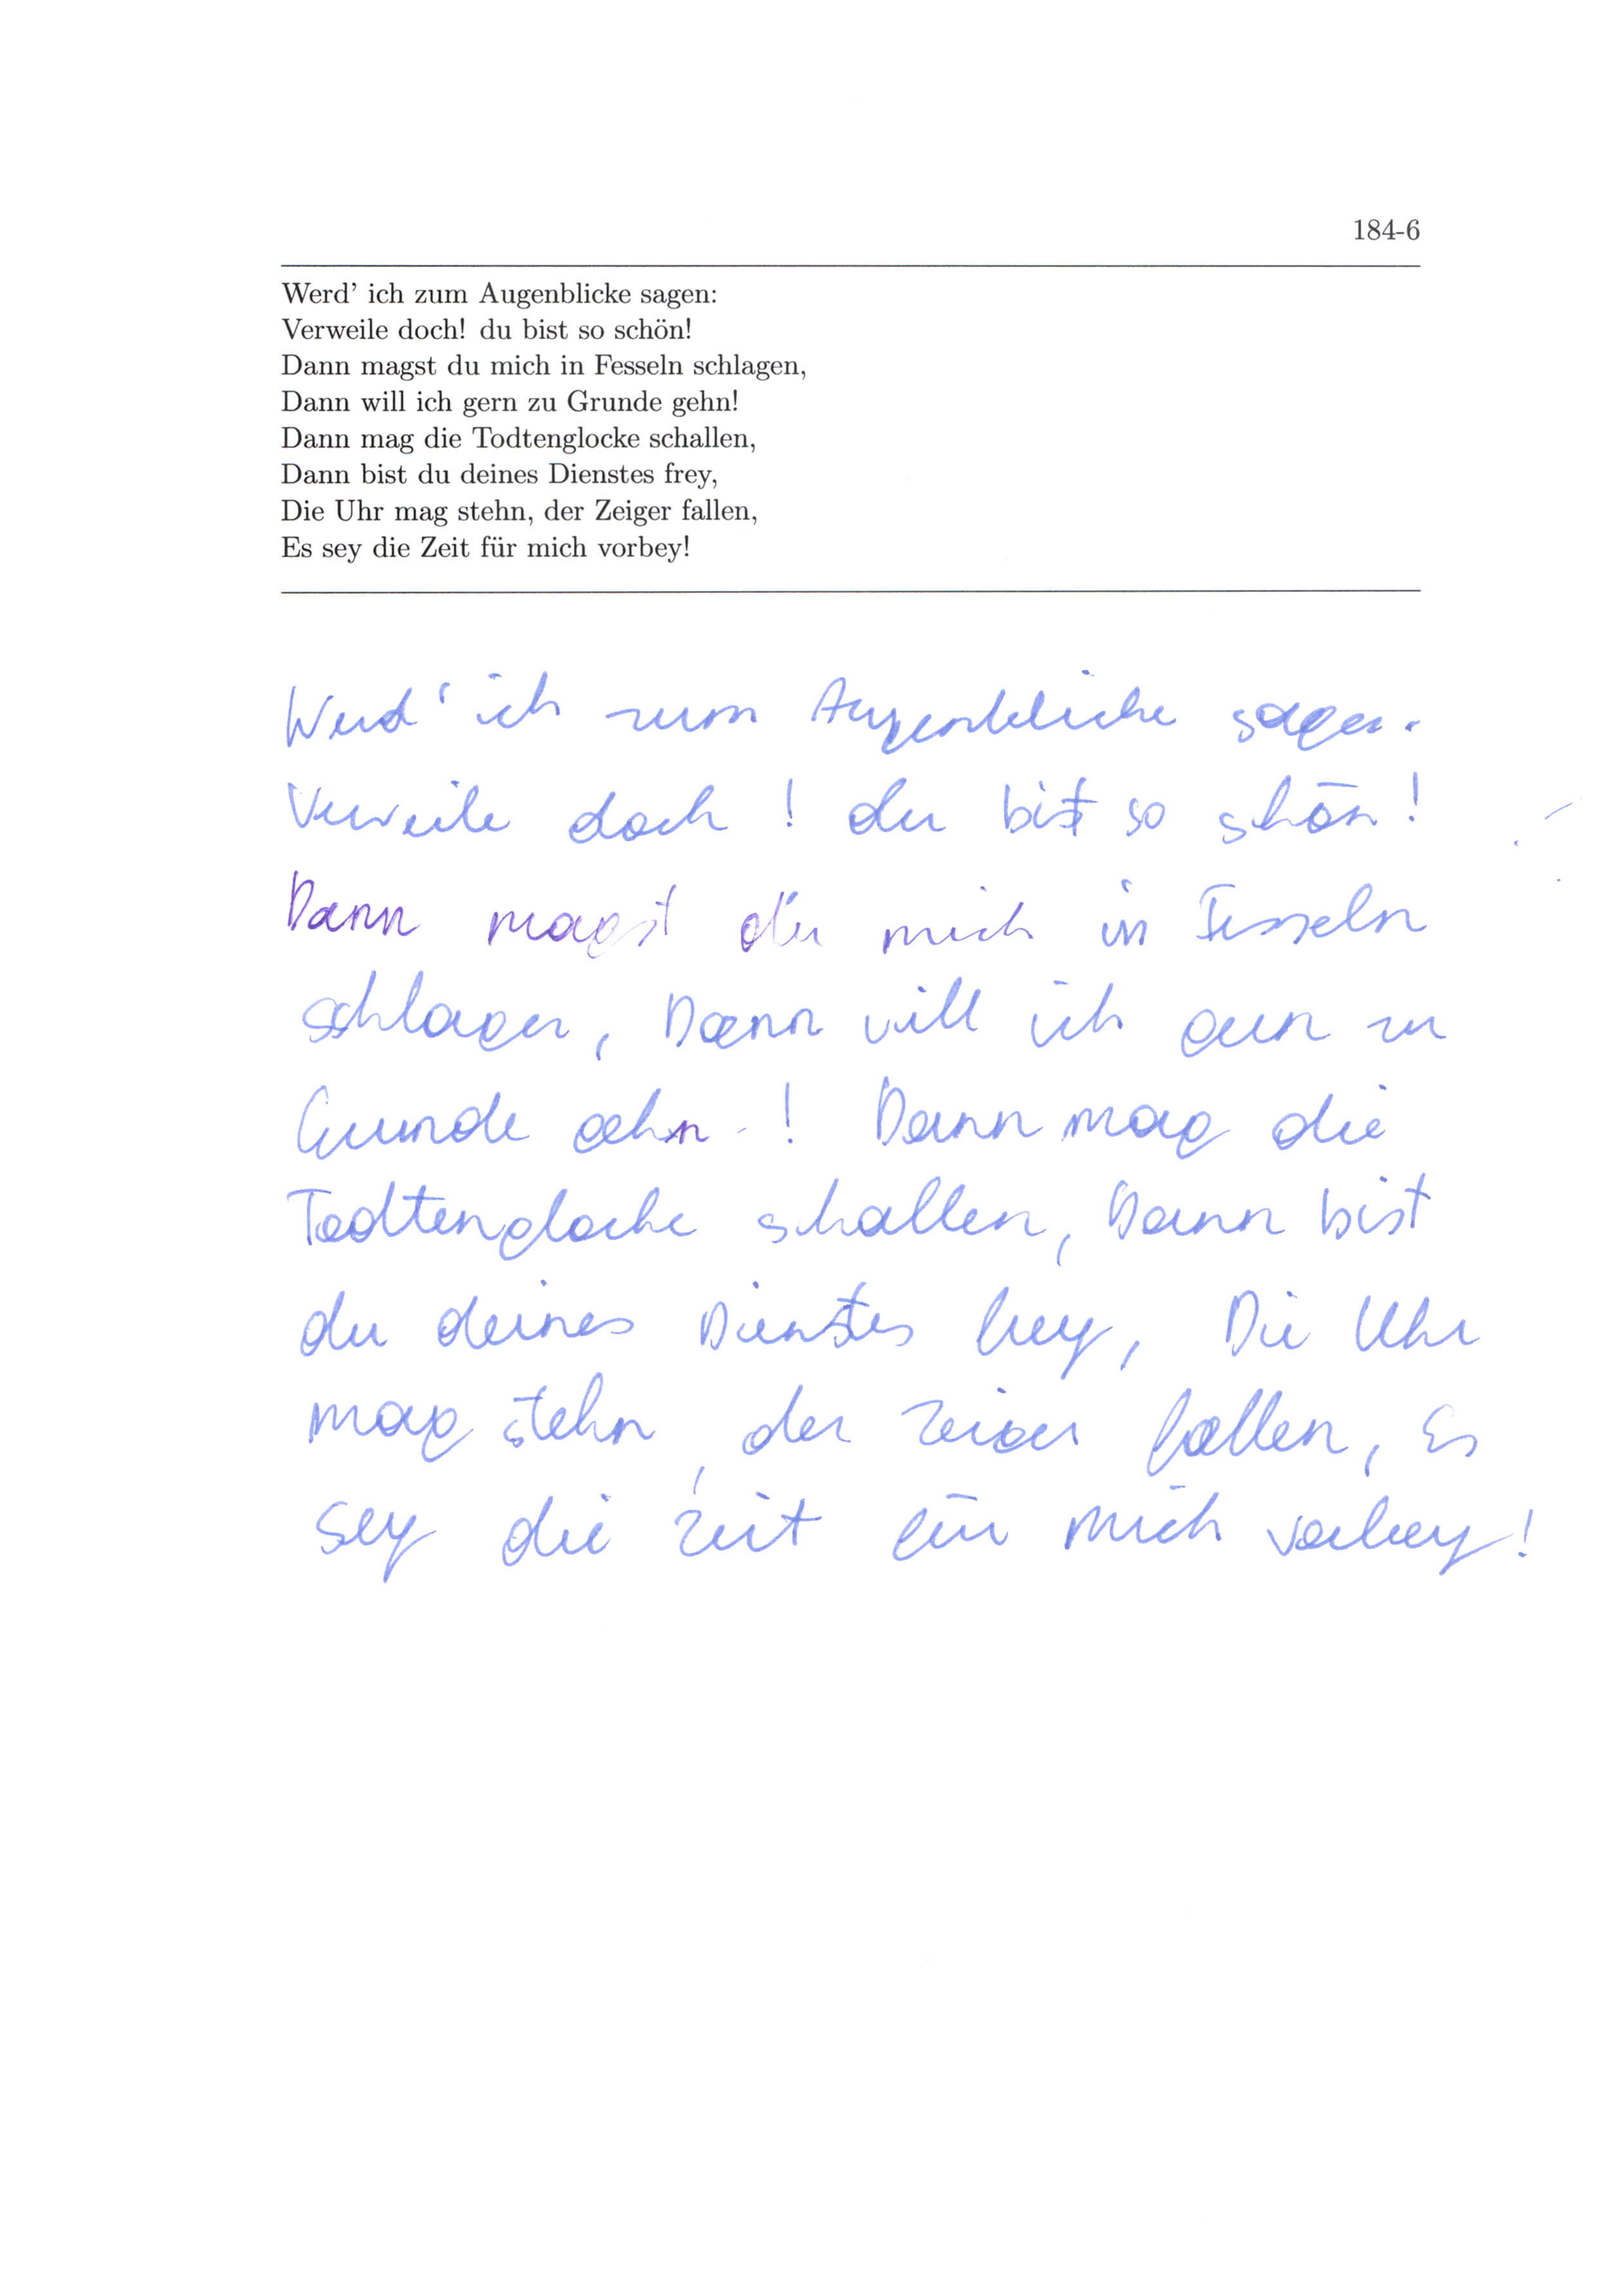 184-6
Werd' ich zum Augenblicke sagen:
Verweile doch! du bist so schön!
Dann magst du mich in Fesseln schlagen,
Dann will ich gern zu Grunde gehn!
Dann mag die Todtenglocke schallen,
Dann bist du deines Dienstes frey,
Die Uhr mag stehn, der Zeiger fallen,
Es sey die Zeit für mich vorbey!
Werd' ich zum Augenblicke sagen.
Verweile doch! du bist so schön!
Dann magst du mich in Fesseln
schlagen, Dann will ich gern zu
Grunde gehn-! Dann mag die
Todtenglocke schallen, Dann bist
du deines Dienstes frey, Die Uhr
mag stehn, der Zeiger fallen, Es
sey die Zeit für mich vorbey!